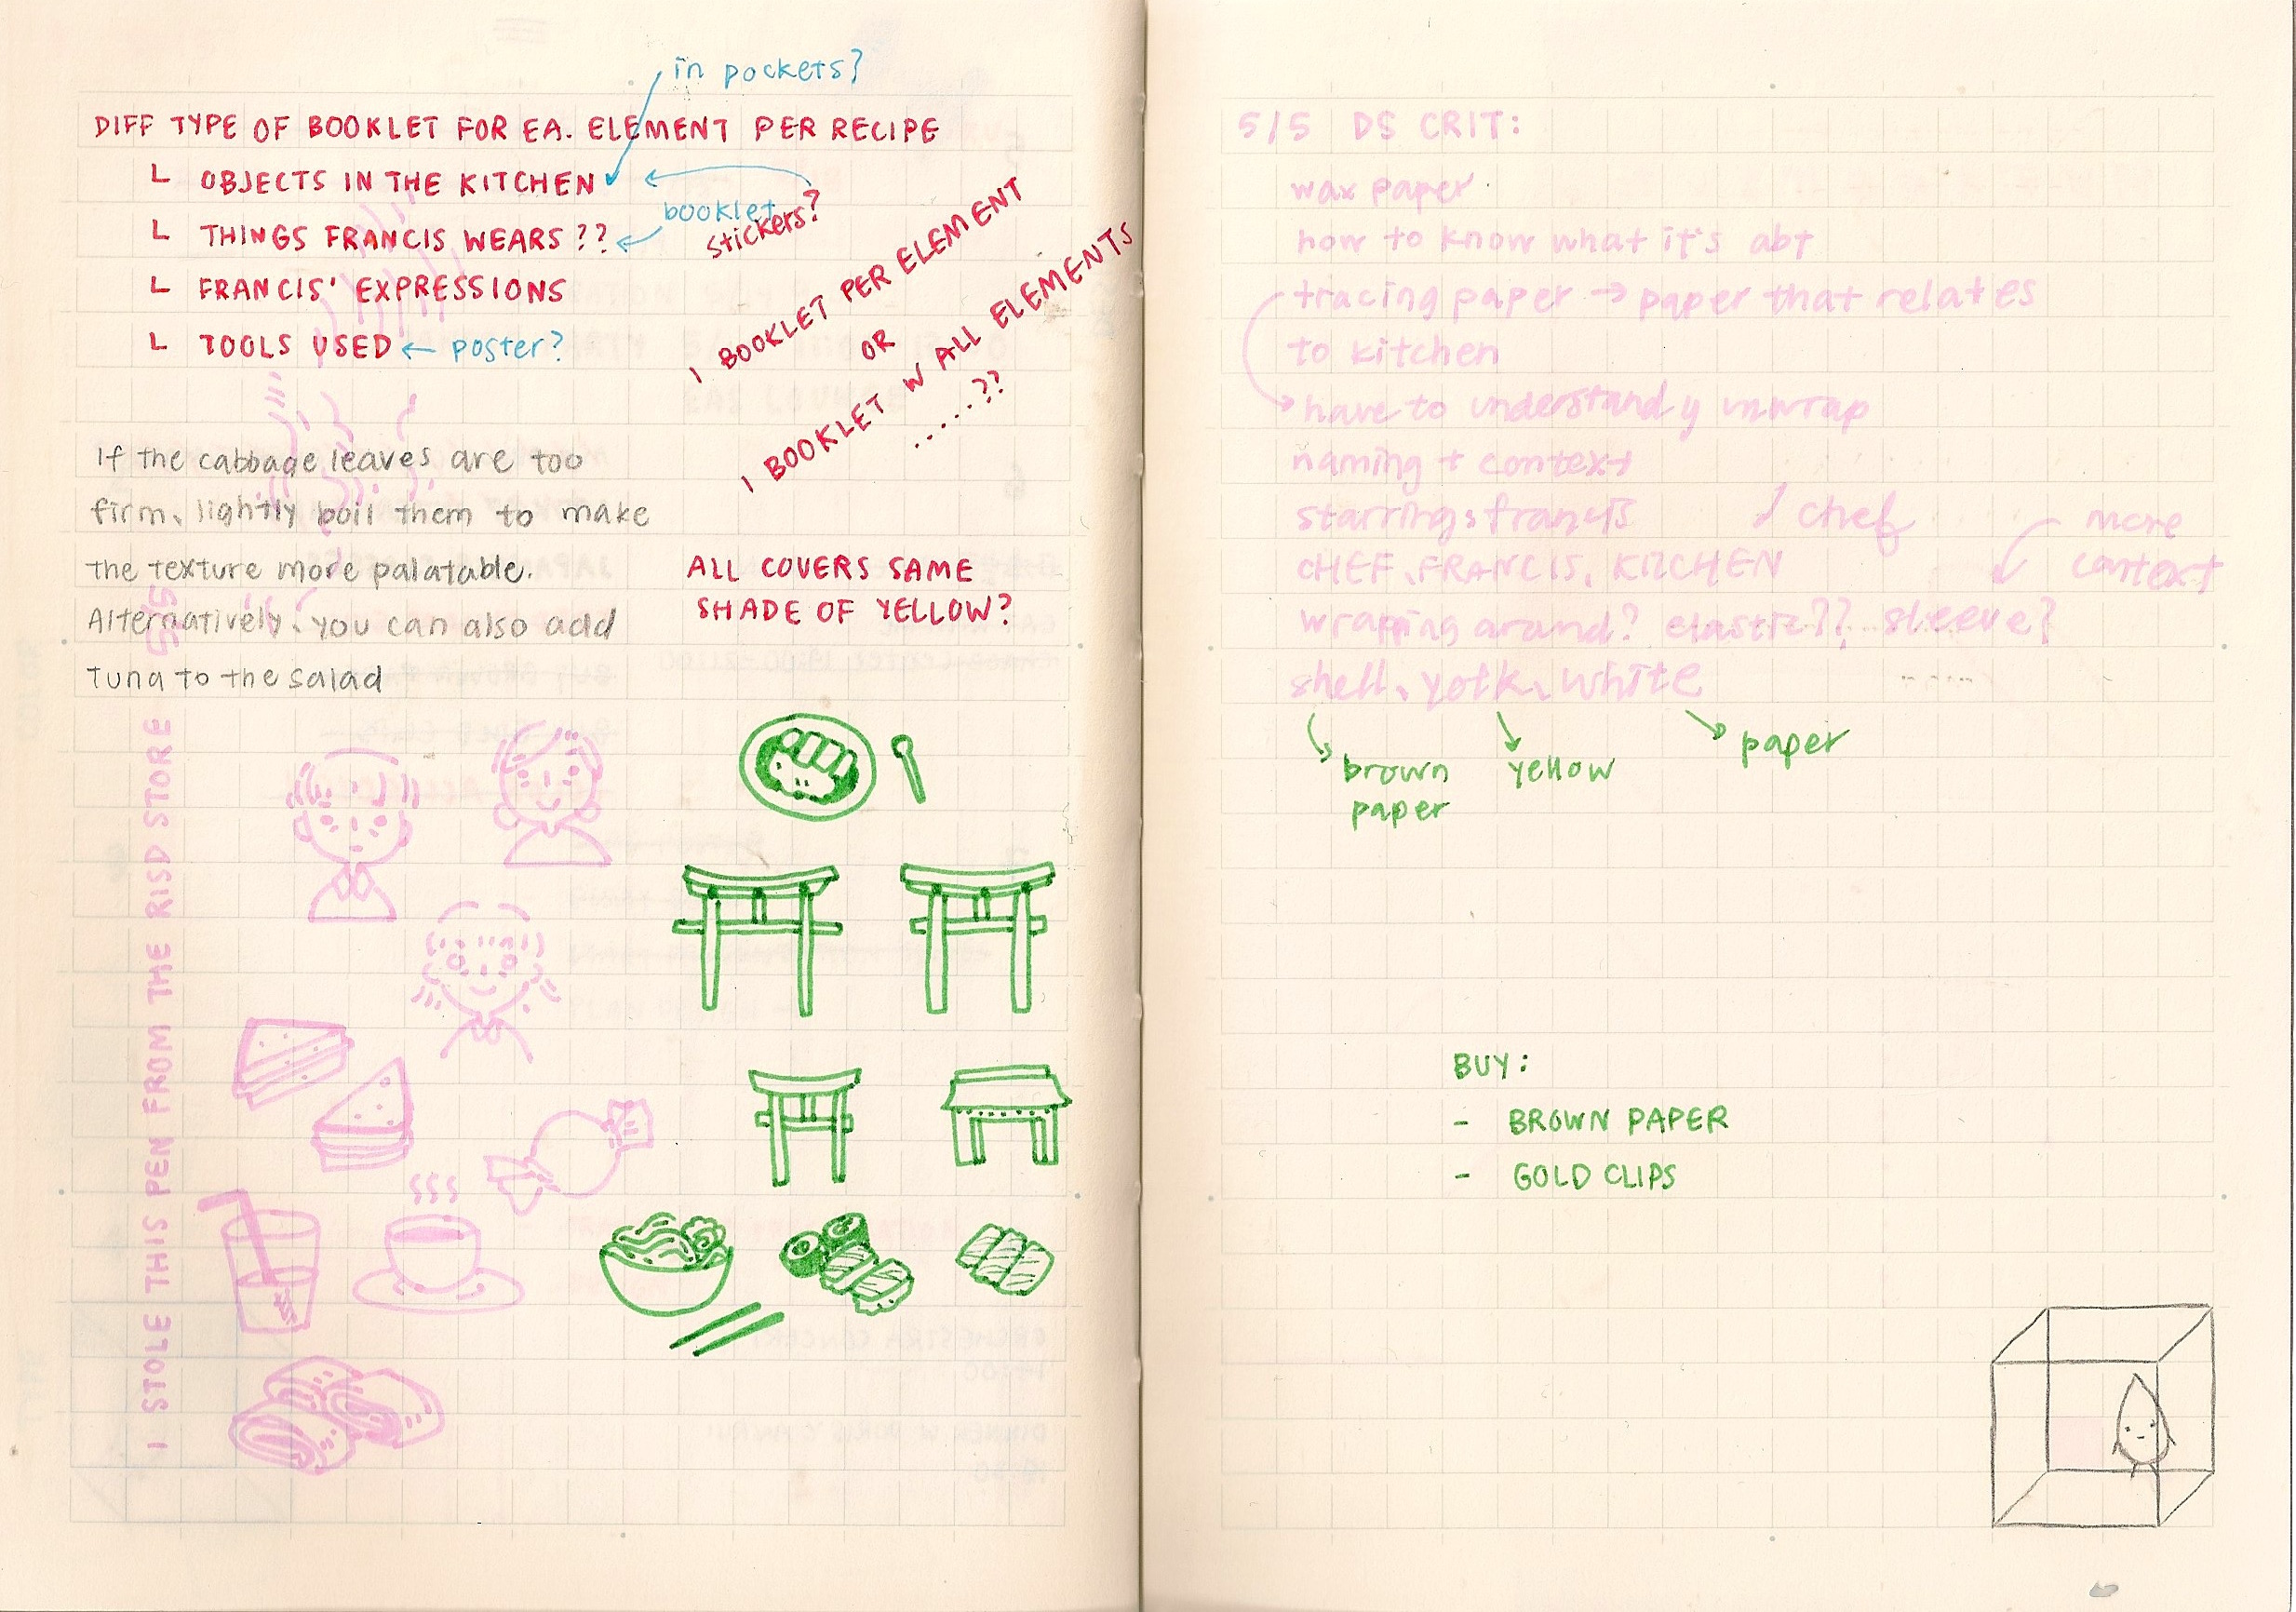 in pockets?
DIFF TYPE OF BOOKLET FOR EA. ELEMENT PER RECIPE
└ OBJECTS IN THE KITCHEN
booklet
stickers?
└ THINGS FRANCIS WEARS ??
└ FRANCIS' EXPRESSIONS
└ TOOLS USED ← poster?
1 BOOKLET PER ELEMENT
OR
1 BOOKLET W ALL ELEMENTS
.....??
If the cabbage leaves are too
firm, lightly boil them to make
the texture more palatable.
Alternatively, you can also add
Tuna to the salad
ALL COVERS SAME
SHADE OF YELLOW?
I STOLE THIS PEN FROM THE RISD STORE
5/5 DS CRIT:
wax paper
how to know what it's abt
tracing paper → paper that relates
to kitchen
have to understand y unwrap
naming + context
starring francis
chef
more
context
CHEF, FRANCIS, KITCHEN
wrapping around? elastic?? sleeve?
shell, yolk, white
brown
paper
yellow
paper
BUY:
- BROWN PAPER
- GOLD CLIPS